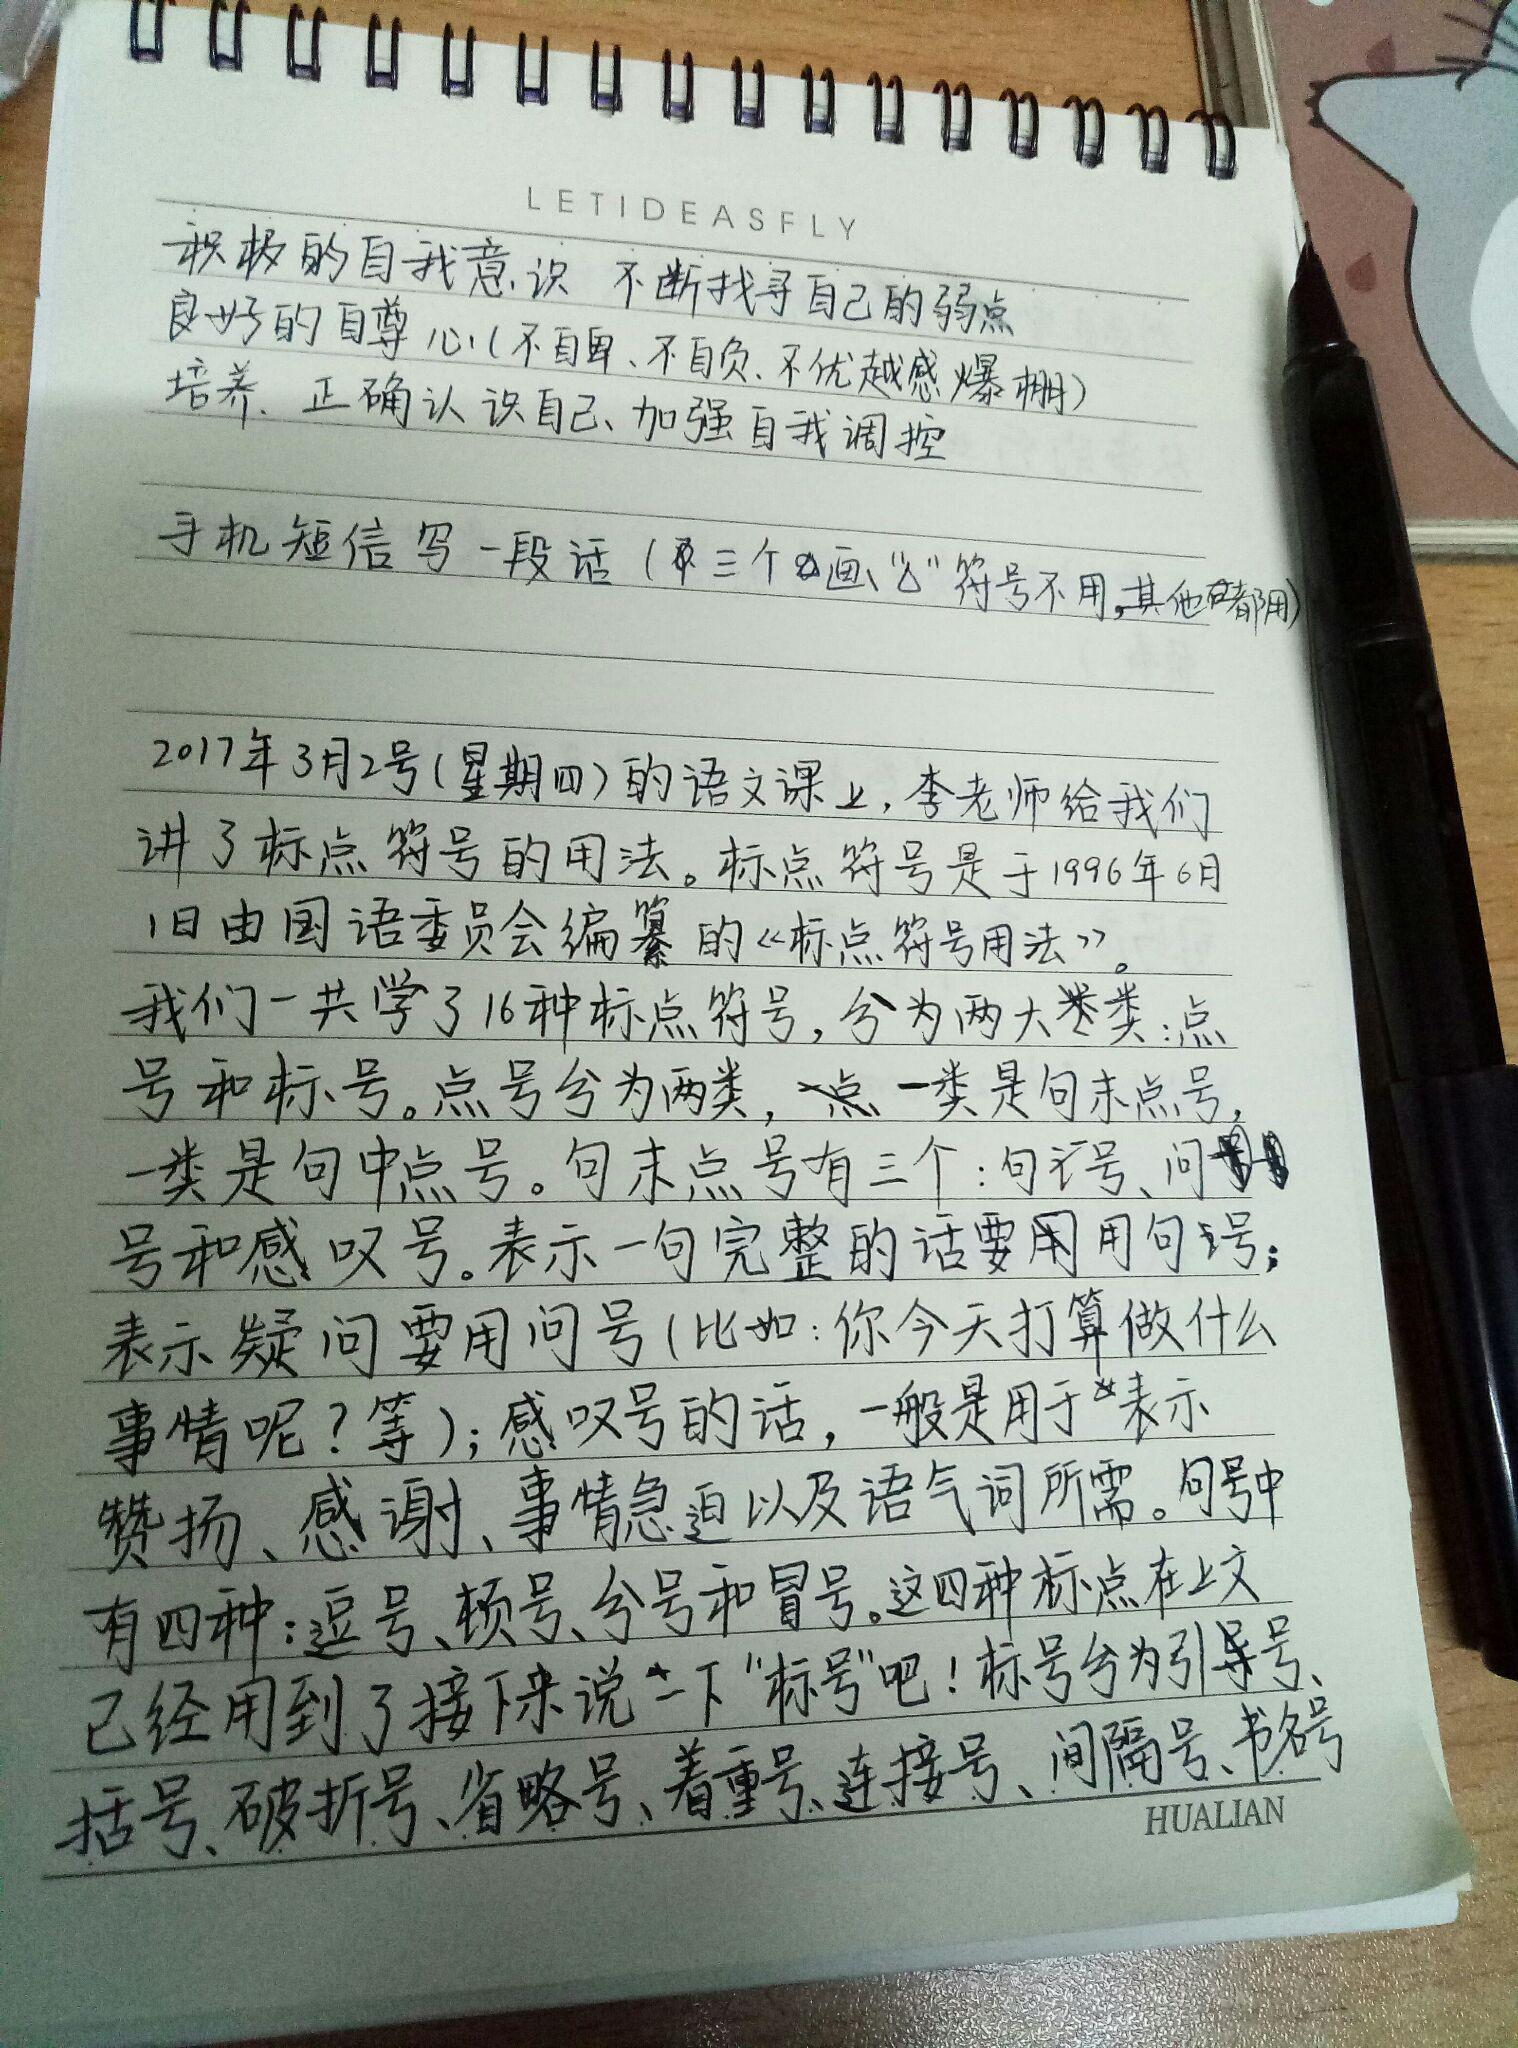 LETIDEASFLY
积极的自我意识 不断找寻自己的弱点
良好的自尊心(不自卑、不自负、不优越感爆棚)
培养、正确认识自己、加强自我调控
手机短信写一段话(三个画、“△”符号不用,其他都用)
2017年3月2号(星期四)的语文课上,李老师给我们
讲了标点符号的用法。标点符号是于1996年6月
1日由国语委员会编纂的《标点符号用法》。
我们一共学了16种标点符号,分为两大类:点
号和标号。点号分为两类,一类是句末点号,
一类是句中点号。句末点号有三个:句号、问
号和感叹号。表示一句完整的话要用句号;
表示疑问要用问号(比如:你今天打算做什么
事情呢?等);感叹号的话,一般是用于表示
赞扬、感谢、事情急迫以及语气词所需。句号中
有四种:逗号、顿号、分号和冒号。这四种标点在上文
已经用到了接下来说一下“标号”吧!标号分为引导号、
括号、破折号、省略号、着重号、连接号、间隔号、书名号
HUALIAN